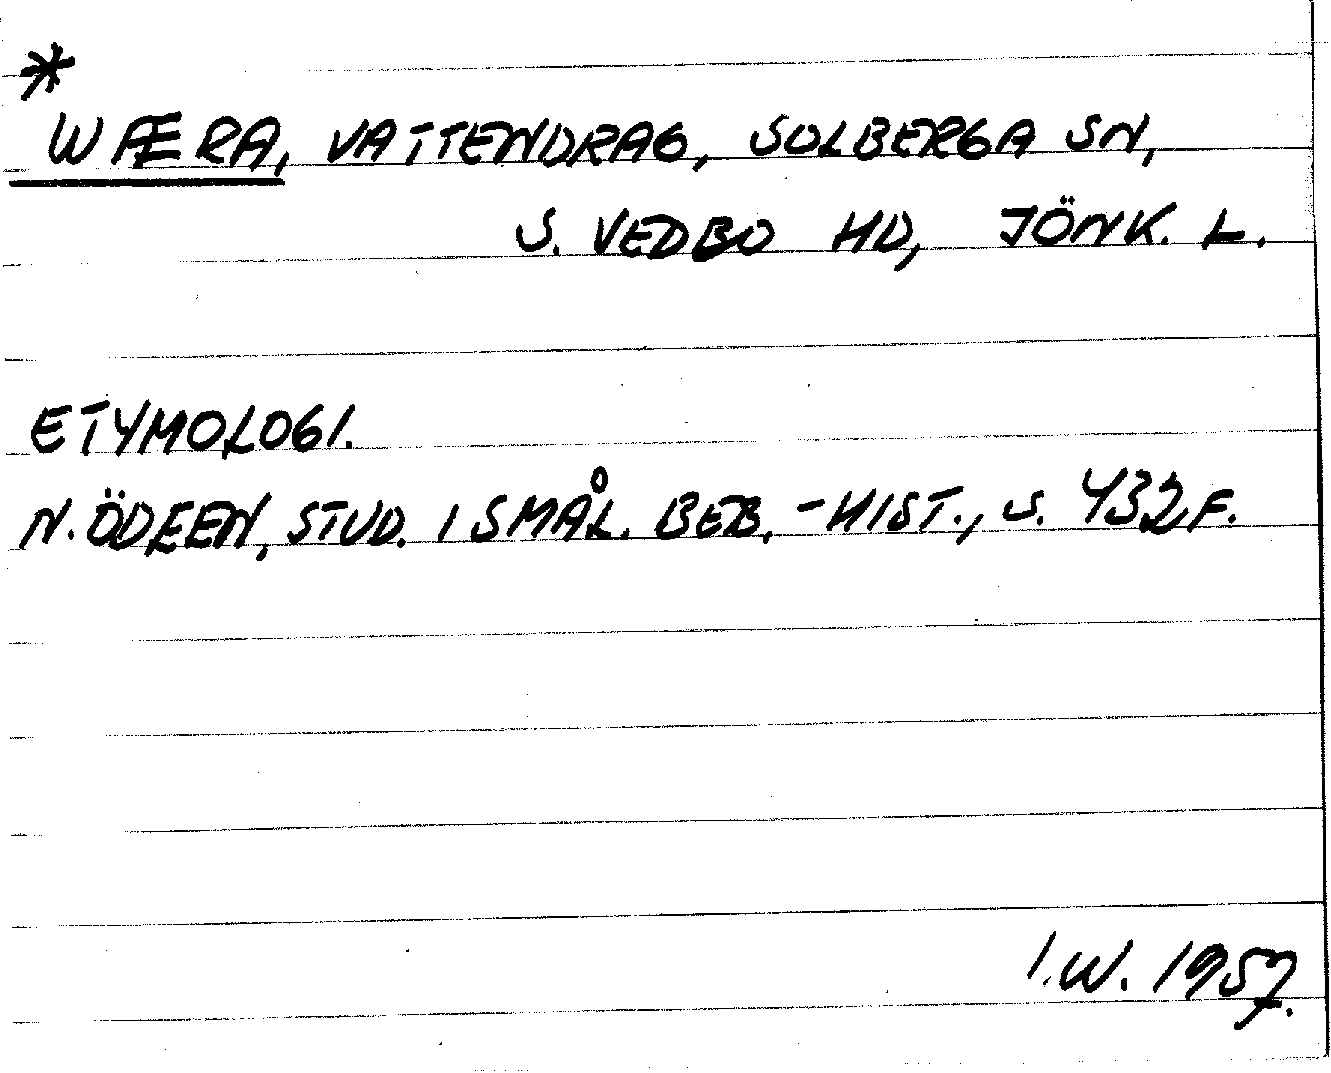 *
WÆRA, VATTENDRAG, SOLBERGA SN,
S. VEDBO HD, JÖNK. L.
ETYMOLOGI.
N. ÖDEEN, STUD. I SMÅL. BEB.-HIST., S. 432 F.
I.W. 1957.